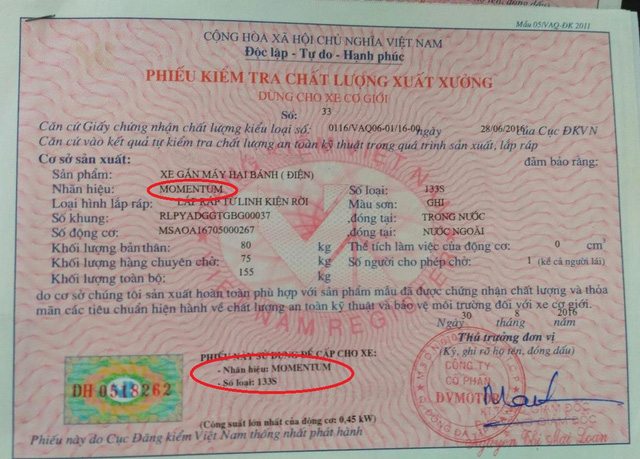 Mẫu 05/VAQ-ĐK 2011
CỘNG HÒA XÃ HỘI CHỦ NGHĨA VIỆT NAM
Độc lập - Tự do - Hạnh phúc
PHIẾU KIỂM TRA CHẤT LƯỢNG XUẤT XƯỞNG
DÙNG CHO XE CƠ GIỚI
Số: 33
Căn cứ Giấy chứng nhận chất lượng kiểu loại số: 0116/VAQ06-01/16-00 ngày 28/06/2016 của Cục ĐKVN
Căn cứ vào kết quả tự kiểm tra chất lượng an toàn kỹ thuật trong quá trình sản xuất, lắp ráp
Cơ sở sản xuất: đảm bảo rằng:
Sản phẩm: XE GẮN MÁY HAI BÁNH ( ĐIỆN)
Nhãn hiệu: MOMENTUM Số loại: 133S
Loại hình lắp ráp: LẮP RÁP TỪ LINH KIỆN RỜI Màu sơn: GHI
Số khung: RLPYADGGTGBG00037 ,đóng tại: TRONG NƯỚC
Số động cơ: MSAOA16705000267 ,đóng tại: NƯỚC NGOÀI
Khối lượng bản thân: 80 kg Thể tích làm việc của động cơ: 0 cm³
Khối lượng hàng chuyên chở: 75 kg Số người cho phép chở: 1 (kể cả người lái)
Khối lượng toàn bộ: 155 kg
do cơ sở chúng tôi sản xuất hoàn toàn phù hợp với sản phẩm mẫu đã được chứng nhận chất lượng và thỏa
mãn các tiêu chuẩn hiện hành về chất lượng an toàn kỹ thuật và bảo vệ môi trường đối với xe cơ giới.
Ngày 30 8 2016
Thủ trưởng đơn vị
(Ký, ghi rõ họ tên, đóng dấu)
PHIẾU NÀY SỬ DỤNG ĐỂ CẤP CHO XE:
- Nhãn hiệu: MOMENTUM
- Số loại: 133S
DH 0518262
CÔNG TY
CỔ PHẦN
DVMOTOR
(Công suất lớn nhất của động cơ: 0,45 kW)
Nguyễn Thị Mai Loan
Phiếu này do Cục Đăng kiểm Việt Nam thống nhất phát hành